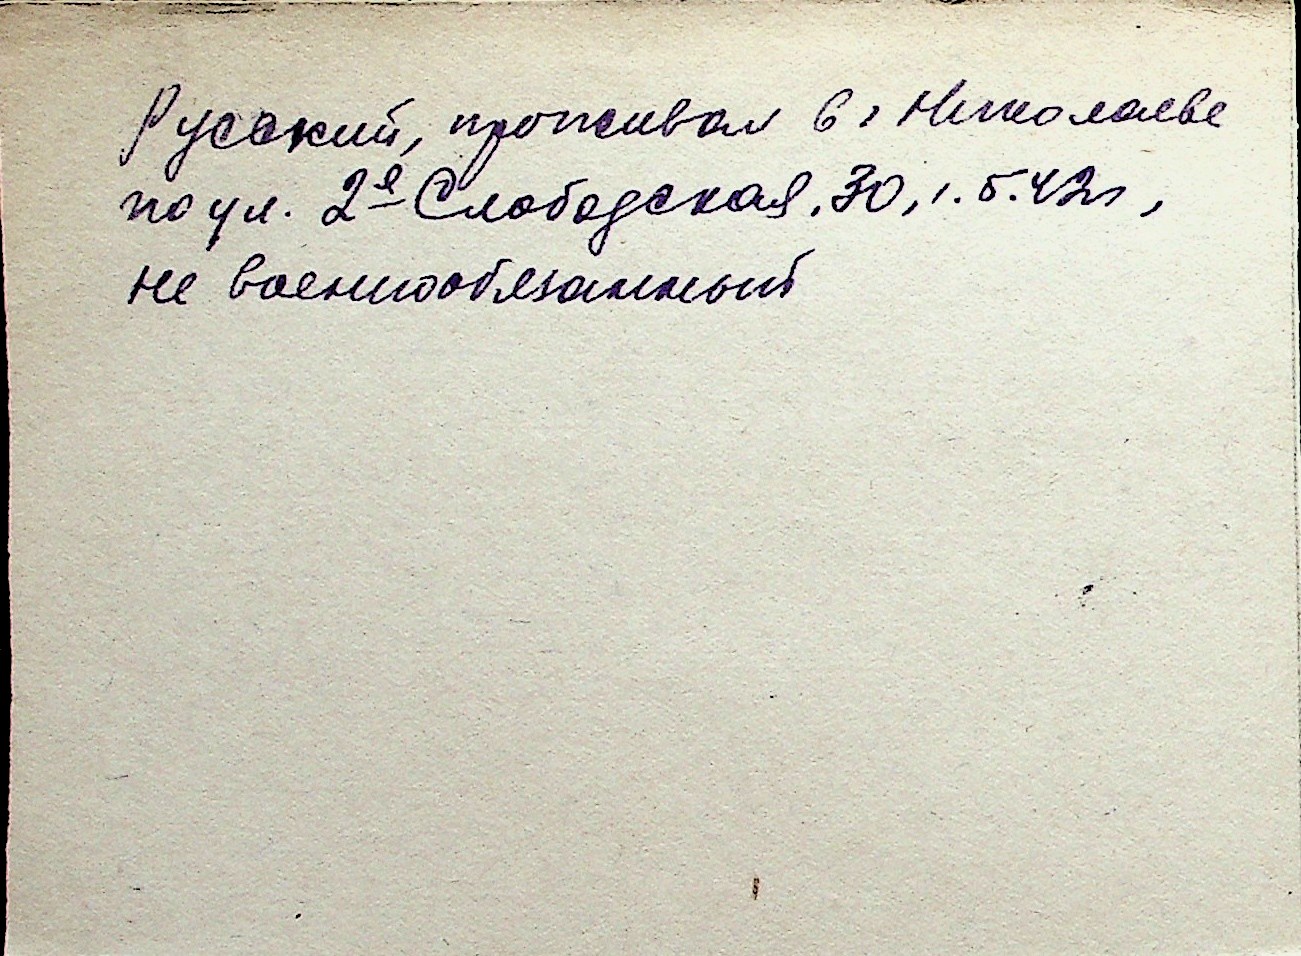 Русский, проживал в г Николаеве
по ул. 2я Слободская, 30, 1.5.42г,
не военнообязанный